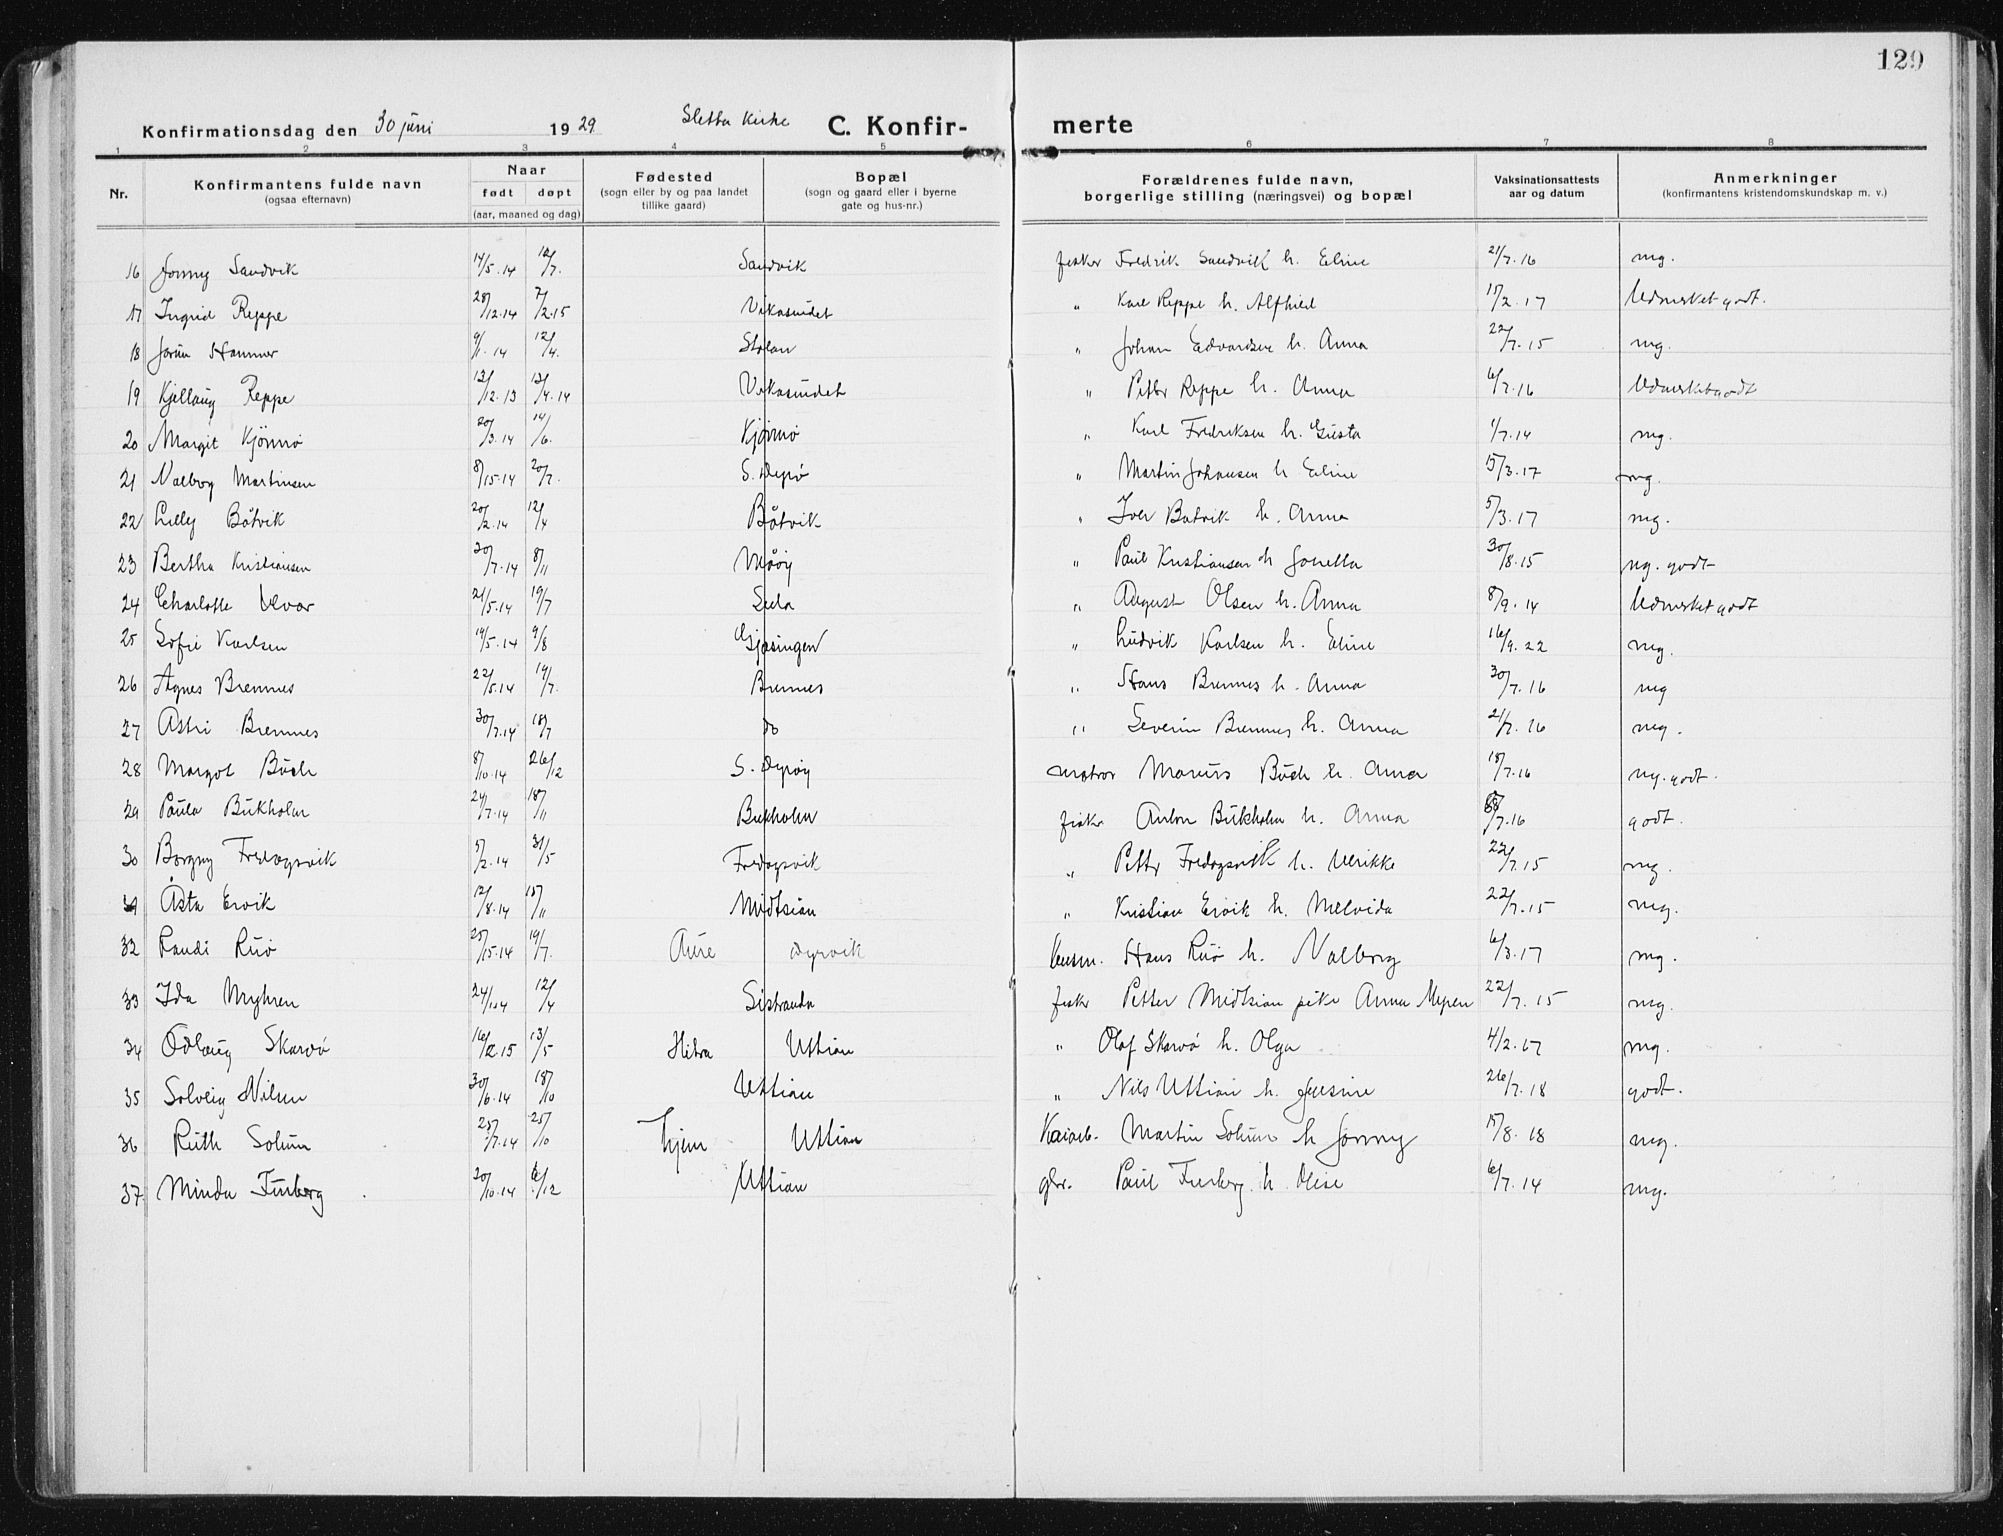 129
Konfirmationsdag den 30 juni 1929 Sletta Kirke C. Konfir- merte
1 2 3 4 5 6 7 8
Nr. Konfirmantens fulde navn (ogsaa efternavn) Naar født døpt (aar, maaned og dag) Fødested (sogn eller by og paa landet tillike gaard) Bopæl (sogn og gaard eller i byerne gate og hus-nr.) Forældrenes fulde navn, borgerlige stilling (næringsvei) og bopæl Vaksinationsattests aar og datum Anmerkninger (konfirmantens kristendomskundskap m. v.)
16 Jonny Sandvik 14/5.14 12/7. Sandvik fisker Fredrik Sandvik h. Eline 21/7.16 mg.
17 Ingrid Reppe 28/12.14 7/2.15 Vikasundet " Karl Reppe h. Alfhild 15/2.17 Udmerket godt.
18 Jorun Hammer 9/1.14 12/4. Stolan " Johan Edvardsen h. Anna 22/7.15 mg.
19 Kjellaug Reppe 13/12.13 13/4.14 Vikasundet " Petter Reppe h. Anna 6/7.16 Udmerket godt
20 Margit Kjønnø 20/3.14 14/6. Kjønnø " Karl Fredriksen h. Gusta 1/7.14 mg.
21 Valborg Martinsen 8/15.14 20/7. S. Dyrø " Martin Johansen h Eline 15/3.17 mg.
22 Lilly Båtvik 20/2.14 12/4 Båtvik " Iver Batvik h. Anna 5/3.17 mg.
23 Bertha Kristiansen 20/7.14 8/11 Måøy " Paul Kristiansen h Jonetta 30/8.15 mg. godt
24 Charlotte Ulvar 21/5.14 19/7 Sula " August Olsen h. Anna 8/9.14 Udmerket godt
25 Sofie Karlsen 14/5.14 9/8 Gjæsingen " Ludvik Karlsen h. Eline 16/9.22 mg.
26 Agnes Bremnes 22/5.14 19/7. Bremnes " Hans Bremnes h. Anna 30/7.16 mg
27 Astri Bremnes 30/7.14 18/7 do " Severin Bremnes h. Anna 21/7.16 mg.
28 Margot Buch 8/10.14 26/12 S. Dyrøy Marius Buch h. Anna 18/7.16 mg. godt.
29 Paula Bukholm 24/7.14 18/11 Bukholm fisker Anton Bukholm h. Anna /7.16 godt.
30 Borgny Fredagsvik 5/2.14 31/5 Fredagsvik " Petter Fredagsvik h. Ulrikke 22/7.15 mg.
31 Åsta Ervik 12/8.14 15/11 Midtsian " Kristian Ervik h. Melvida 22/7.15 mg.
32 Randi Ruø 25/15.14 19/7. Aure Dyrvik Hans Ruø h. Valborg 6/3.17 mg.
33 Ida Myhren 24/1.14 12/4 Sistranda fisker Petter Midtsian pike Anna Myren 22/7.15 mg.
34 Odlaug Skarvø 16/2.15 13/5 Hitra Uttian " Olaf Skarvø h. Olga 4/2.17 mg.
35 Solveig Nilsen 30/6.14 18/10 Uttian " Nils Uttian h. 26/7.18 godt.
36 Ruth Solum 25/7.14 25/10 hjem Uttian Kaiarb. Martin Solum h Jonny 15/8.18 mg.
37. Minda Furberg 20/10.14 6/12 Uttian gbr. Paul Furberg h Olise 6/7.14 mg.